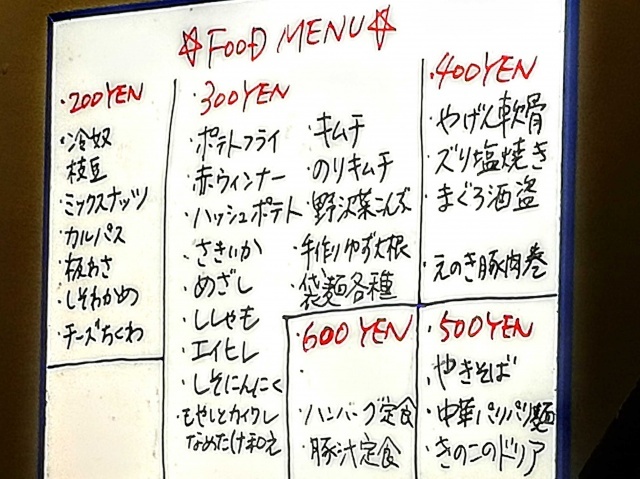 ☆FOOD MENU☆
・200YEN
・冷奴
枝豆
・ミックスナッツ
・カルパス
・板わさ
・しそわかめ
・チーズちくわ
・300YEN
・ポテトフライ
・赤ウィンナー
・ハッシュポテト
・さきいか
・めざし
・ししゃも
・エイヒレ
・しそにんにく
・もやしとカイワレ
なめたけ和え
・キムチ
・のりキムチ
・野沢菜こんぶ
・手作りゆず大根
・袋麺各種
・400YEN
・やげん軟骨
・ズリ塩焼き
・まぐろ酒盗
・えのき豚肉巻
・600YEN
・
・ハンバーグ定食
・豚汁定食
・500YEN
・やきそば
・中華パリパリ麺
・きのこのドリア